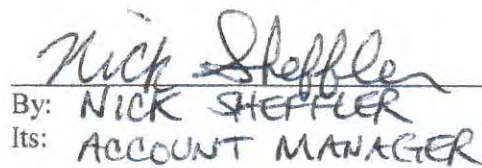 Nick Sheffler
By: NICK SHEFFLER
Its: ACCOUNT MANAGER